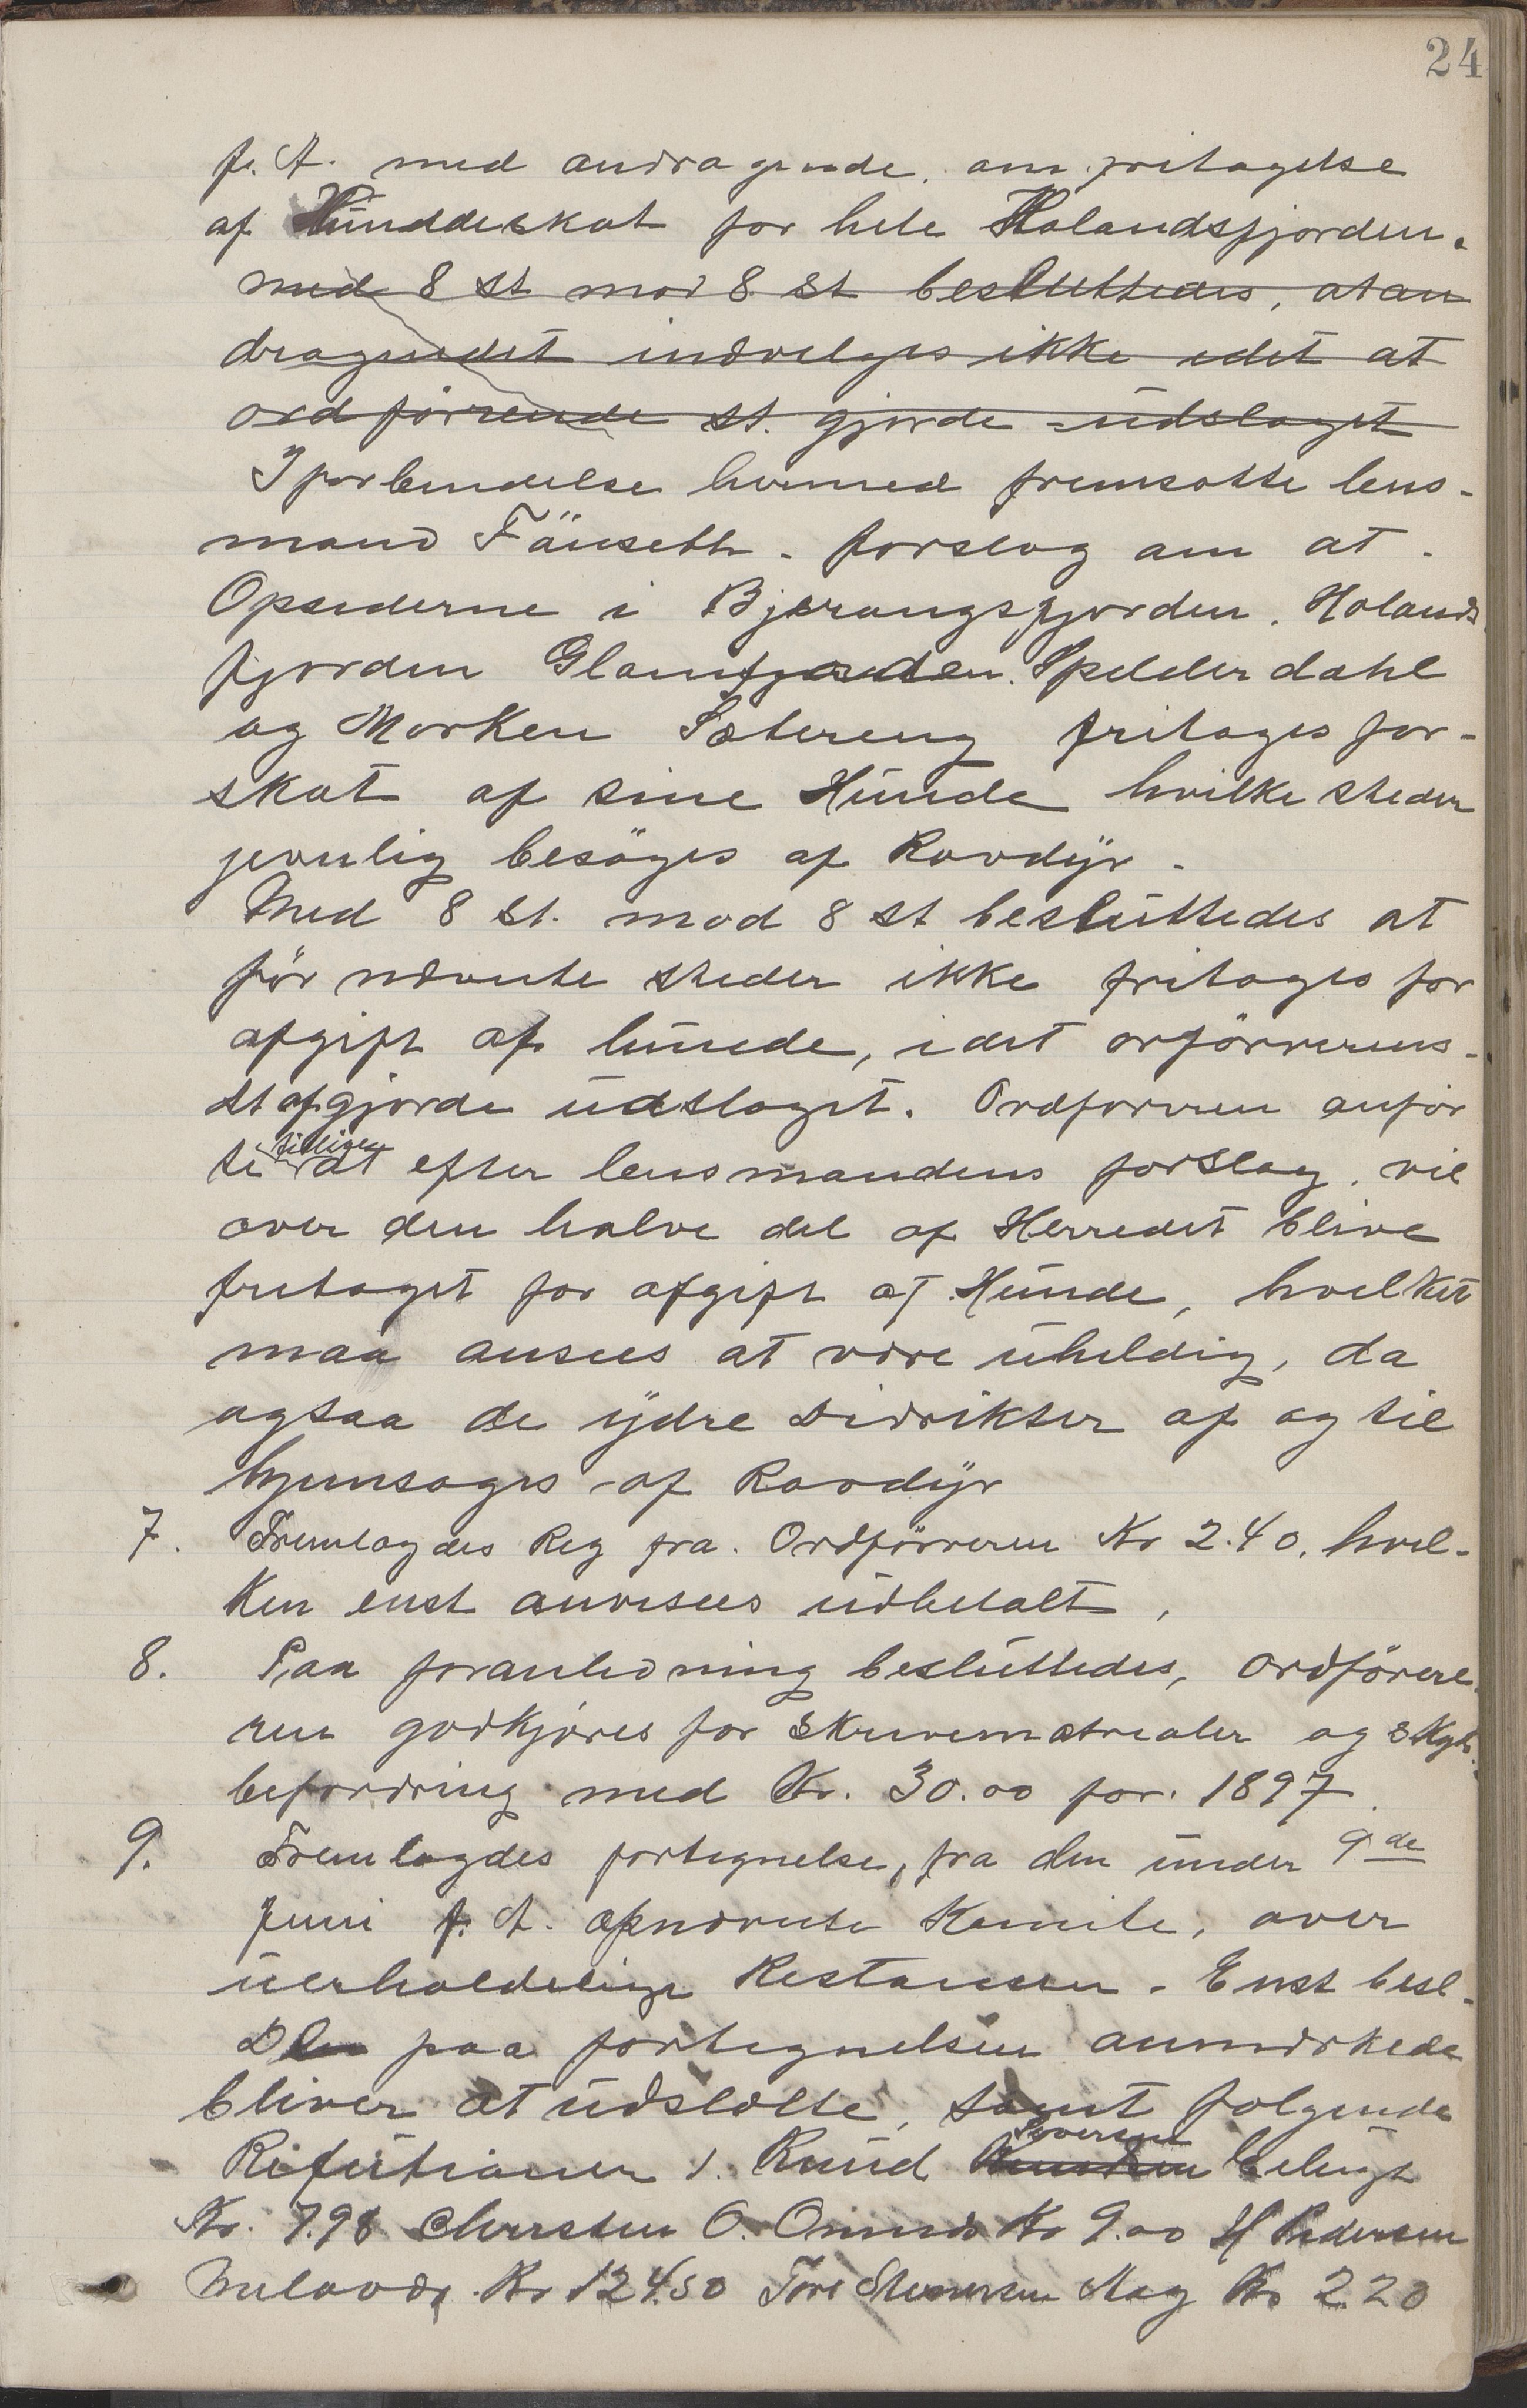 24
f. A. med andragende. om fritagelse
af Hunddeskat for hele Holandsfjorden.
med 8 st mod 8 st besluttedes, at an
dragendet indvelges ikke idet at
ordførrende st. gjorde udslaget
I forbendelse hermed fremsatte lens-
mand Fånseth - forslag om at -
Opsiderne i Bjærangsfjorden. Holands
fjorden Glomfjorden. Spilderdahl
og Morken Sætereng fritages for-
skat af sine Hunde hvilke steder
jevnlig besøges af Rovdyr -
Med 8 st. mod 8 st besluttedes at
før nævnte steder ikke fritages for
afgift af hunde, idet orførrerens-
st afgjorde udslaget. Ordforeren anfør
te tilliges at efter lensmandens forslag. vil
over den halve del af Herredet blive
fritaget for afgift af Hunde, hvelket
maa ansees at være uheldig, da
ogsaa de ydre Didrikter af og til
hjemsøges af Rovdyr
7. Fremlagdes Reg fra. Ordførreren Kr 2.40. hvel-
ken enst anvisees udbetalt,
8. Paa foranledning besluttedes, Ordførere
ren godkjøres for skrivematrialer og skyds
befordring med Kr. 30.00 for 1897.
9. Fremlagdes fortegnelse, fra den under 9de
Juni f. A. opnævnte Komite, over
uerholdelige Restanser. Enst besl.
De paa fortegnelsen anmærkede
bliver at udslætte, samt folgende
Rifutioner 1. Knud Sÿversen
Kr. 7.98 Chersten O. Kr 9.00 H Pedersen
Kr 124.50 Tore Kr 2.20